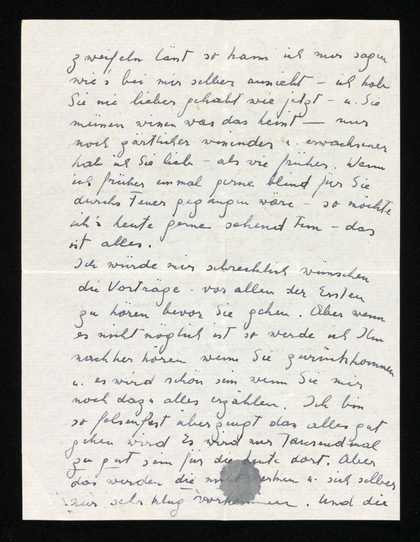 zweifeln lässt so kann ich nur sagen
wie's bei mir selber aussieht – ich hab
Sie nie lieber gehabt wie jetzt – u. Sie
müssen wissen was das heisst — nur
noch zärtlicher u. erwachsener
hab ich Sie lieb – als wie früher. Wenn
ich früher einmal gerne blind für Sie
durchs Feuer gegangen wäre – so möchte
ich's heute gerne sehend tun – das
ist alles.
Ich würde mir schrecklich wünschen
die Vorträge – vor allem den Ersten
zu hören bevor Sie gehen. Aber wenn
es nicht möglich ist so werde ich ihn
nachher hören wenn Sie zurückkommen
u. es wird schön sein wenn Sie mir
noch dazu alles erzählen. Ich bin
so felsenfest überzeugt das alles gut
gehen wird Es wird nur Tausendmal
zu gut sein für die Leute dort. Aber
das werden die merken u. sich selber
sehr klug vorkommen. Und die